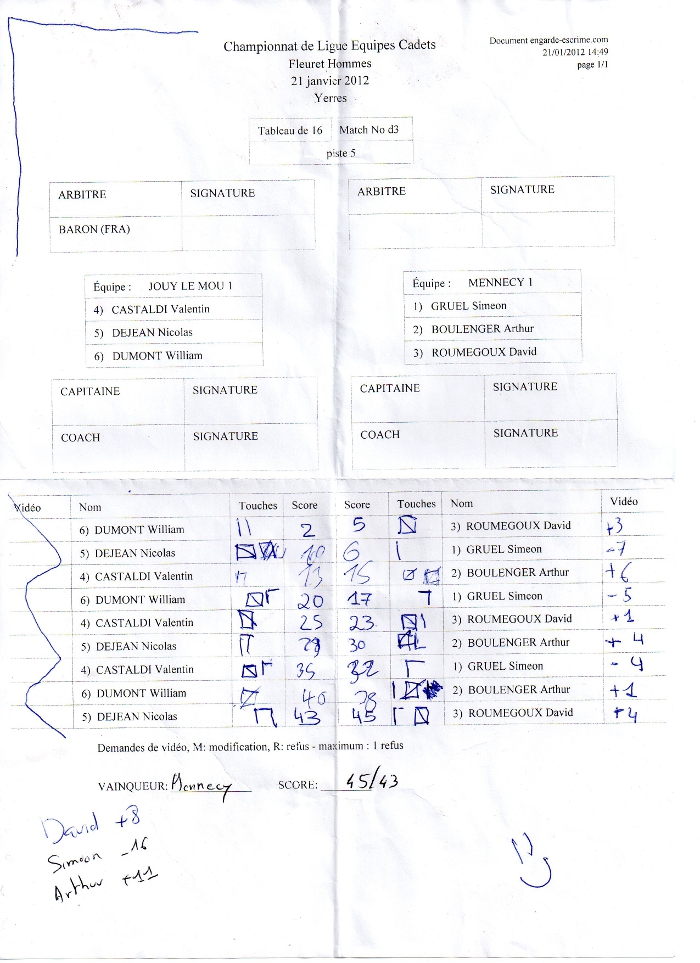 Championnat de Ligue Equipes Cadets
Fleuret Hommes
21 janvier 2012
Yerres
Document engarde-escrime.com
21/01/2012 14:49
page 1/1
Tableau de 16 Match No d3
piste 5
ARBITRE SIGNATURE
BARON (FRA)
ARBITRE SIGNATURE
Équipe : JOUY LE MOU 1
4) CASTALDI Valentin
5) DEJEAN Nicolas
6) DUMONT William
Équipe : MENNECY 1
1) GRUEL Simeon
2) BOULENGER Arthur
3) ROUMEGOUX David
CAPITAINE SIGNATURE
COACH SIGNATURE
CAPITAINE SIGNATURE
COACH SIGNATURE
Vidéo Nom Touches Score Score Touches Nom Vidéo
6) DUMONT William 2 5 3) ROUMEGOUX David +3
5) DEJEAN Nicolas 10 6 1) GRUEL Simeon -7
4) CASTALDI Valentin 13 15 2) BOULENGER Arthur +6
6) DUMONT William 20 17 1) GRUEL Simeon -5
4) CASTALDI Valentin 25 23 3) ROUMEGOUX David +1
5) DEJEAN Nicolas 30 2) BOULENGER Arthur +4
4) CASTALDI Valentin 35 32 1) GRUEL Simeon -4
6) DUMONT William 40 38 2) BOULENGER Arthur +1
5) DEJEAN Nicolas 43 45 3) ROUMEGOUX David +4
Demandes de vidéo, M: modification, R: refus - maximum : 1 refus
VAINQUEUR: Mennecy SCORE: 45/43
David +8
Simeon -16
Arthur +11